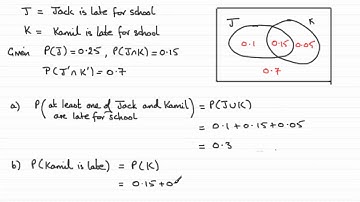 J = Jack is late for school
K = Kamil is late for school
Given P(J) = 0.25 , P(J∩K) = 0.15
P(J'∩K') = 0.7
J K
0.1 0.15 0.05
0.7
a) P(at least one of Jack and Kamil are late for school) = P(J∪K)
= 0.1 + 0.15 + 0.05
= 0.3
b) P(Kamil is late) = P(K)
= 0.15 + 0.